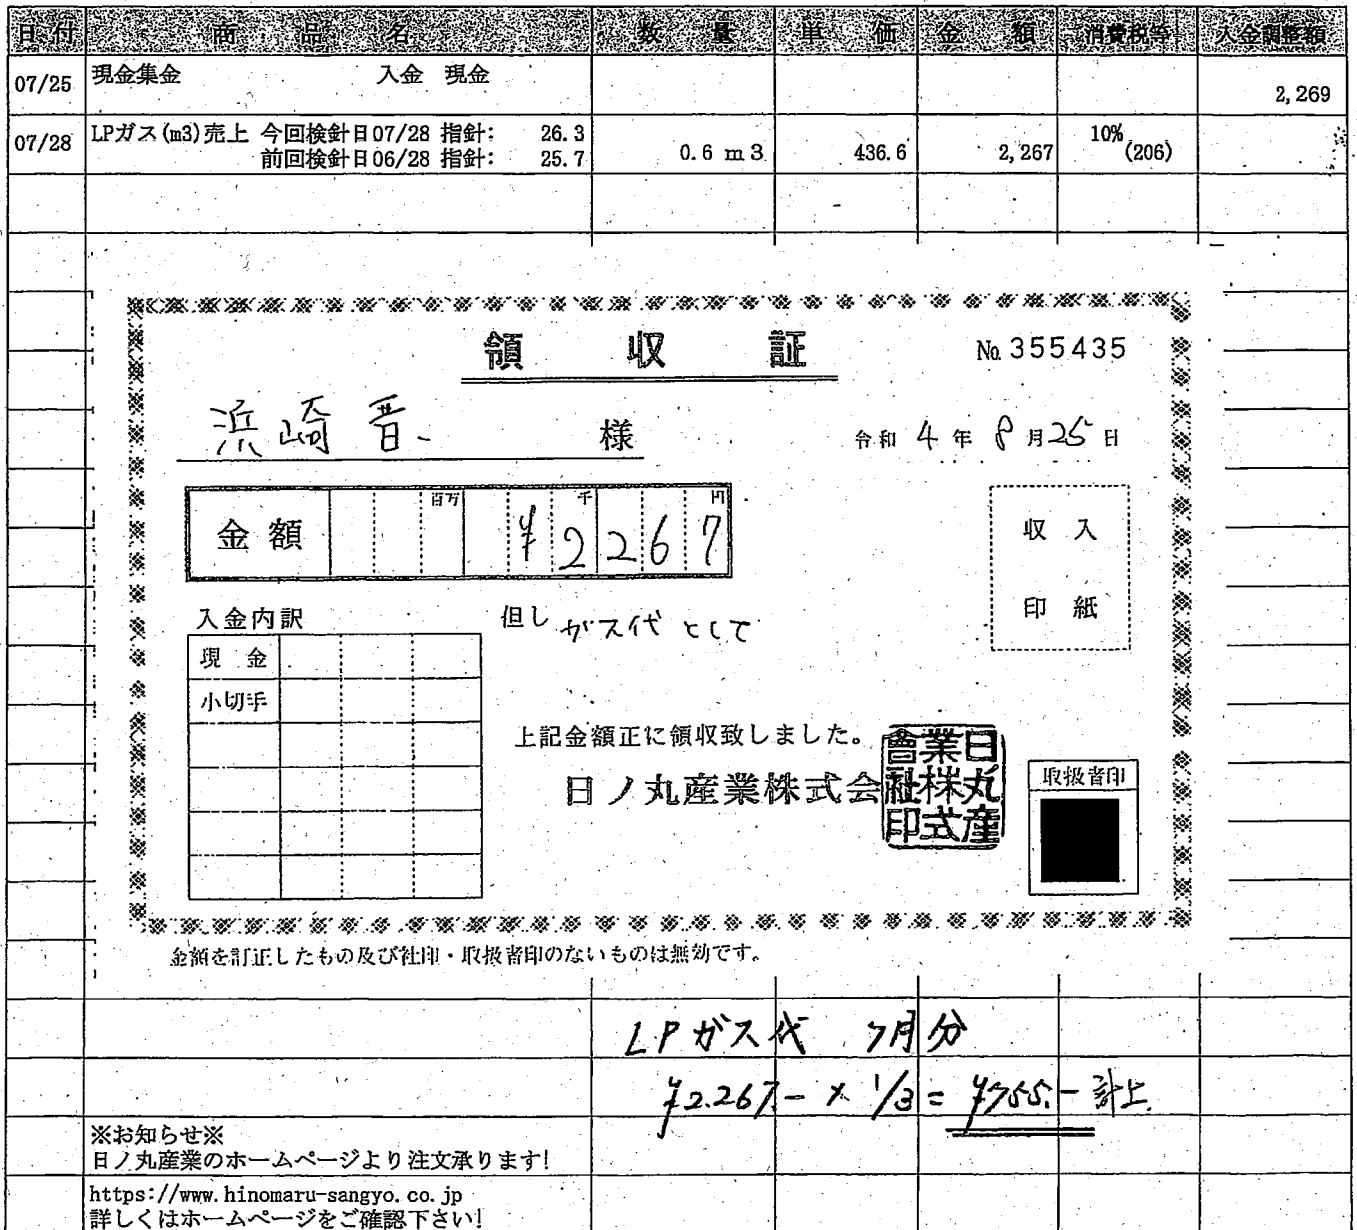 日付 商品名 数量 単価 金額 消費税等 入金調整額
07/25 現金集金 入金 現金 2,269
07/28 LPガス(m3)売上 今回検針日07/28 指針: 26.3
前回検針日06/28 指針: 25.7 0.6 m3 436.6 2,267 10% (206)
領収証 № 355435
浜崎晋 様 令和 4 年 8 月 25 日
金額 百万 千 円 ¥2267
収入
印紙
入金内訳 但し ガス代として
現金
小切手
上記金額正に領収致しました。
日ノ丸産業株式会社
日丸産業株式會社印
取扱者印
金額を訂正したもの及び社印・取扱者印のないものは無効です。
LPガス代 7月分
¥2.267.- × 1/3 = ¥755.- 計上.
※お知らせ※
日ノ丸産業のホームページより注文承ります!
https://www.hinomaru-sangyo.co.jp
詳しくはホームページをご確認下さい!